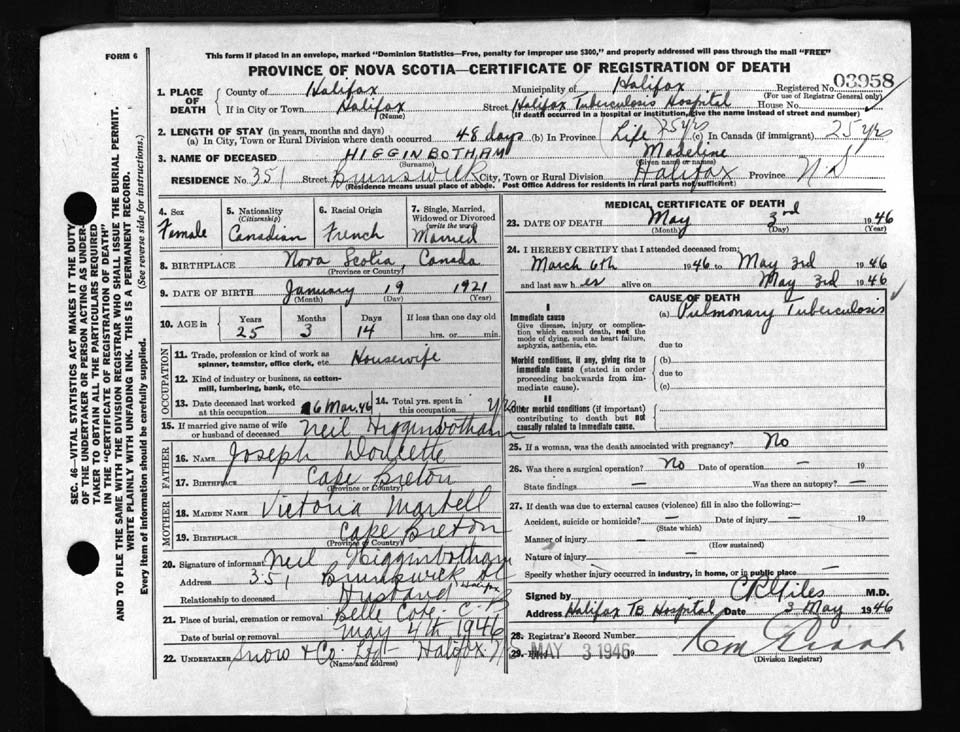 FORM 6
This form if placed in an envelope, marked "Dominion Statistics—Free, penalty for improper use $300," and properly addressed will pass through the mail "FREE"
PROVINCE OF NOVA SCOTIA—CERTIFICATE OF REGISTRATION OF DEATH
1. PLACE OF DEATH County of Halifax Municipality of Halifax Registered No. 03958
(For use of Registrar General only)
If in City or Town Halifax Street Halifax Tuberculosis Hospital House No.
(Name) (If death occurred in a hospital or institution, give the name instead of street and number)
2. LENGTH OF STAY (in years, months and days)
(a) In City, Town or Rural Division where death occurred 48 days (b) In Province Life 25 yrs (c) In Canada (if immigrant) 25 yrs
3. NAME OF DECEASED HIGGINBOTHAM Madeline
(Surname) (Given name or names)
RESIDENCE No. 351 Street Brunswick City, Town or Rural Division Halifax Province N.S
(Residence means usual place of abode. Post Office Address for residents in rural parts not sufficient)
4. Sex Female
5. Nationality (Citizenship) Canadian
6. Racial Origin French
7. Single, Married, Widowed or Divorced (write the word) Married
8. BIRTHPLACE Nova Scotia, Canada
(Province or Country)
9. DATE OF BIRTH January 19 1921
(Month) (Day) (Year)
10. AGE in Years 25 Months 3 Days 14 If less than one day hrs. or min.
OCCUPATION
11. Trade, profession or kind of work as spinner, teamster, office clerk, etc. Housewife
12. Kind of industry or business, as cotton-mill, lumbering, bank, etc.
13. Date deceased last worked at this occupation 6 Mar. 46 14. Total yrs. spent in this occupation
15. If married give name of wife or husband of deceased Neil Higginbotham
FATHER
16. NAME Joseph Doucette
17. BIRTHPLACE Cape Breton
(Province or Country)
MOTHER
18. MAIDEN NAME Victoria Martell
19. BIRTHPLACE Cape Breton
(Province or Country)
20. Signature of informant Neil Higginbotham
Address 351 Brunswick St Halifax
Relationship to deceased Husband
21. Place of burial, cremation or removal Belle Cote. C.B
Date of burial or removal May 4th 1946
22. UNDERTAKER Snow & Co. Ltd Halifax N.S
(Name and address)
MEDICAL CERTIFICATE OF DEATH
23. DATE OF DEATH May 3rd 1946
(Month) (Day) (Year)
24. I HEREBY CERTIFY that I attended deceased from:
March 6th 1946 to May 3rd 1946
and last saw her alive on May 3rd 1946
CAUSE OF DEATH
I
Immediate cause (a) Pulmonary Tuberculosis
Give disease, injury or complication which caused death, not the mode of dying, such as heart failure, asphyxia, asthenia, etc.
due to
Morbid conditions, if any, giving rise to immediate cause (stated in order proceeding backwards from immediate cause).
(b)
due to
(c)
II
Other morbid conditions (if important) contributing to death but not causally related to immediate cause.
25. If a woman, was the death associated with pregnancy? No
26. Was there a surgical operation? No Date of operation — 19
State findings — Was there an autopsy? —
27. If death was due to external causes (violence) fill in also the following:
Accident, suicide or homicide? — Date of injury — 19
(State which)
Manner of injury —
(How sustained)
Nature of injury —
Specify whether injury occurred in industry, in home, or in public place —
Signed by M.D.
Address Halifax TB. Hospital Date 3 May 1946
28. Registrar's Record Number
29. MAY 3 1946
(Division Registrar)
SEC. 46—VITAL STATISTICS ACT MAKES IT THE DUTY
OF THE UNDERTAKER OR PERSON ACTING AS UNDERTAKER TO OBTAIN ALL THE PARTICULARS REQUIRED
IN THE "CERTIFICATE OF REGISTRATION OF DEATH"
AND TO FILE THE SAME WITH THE DIVISION REGISTRAR WHO SHALL ISSUE THE BURIAL PERMIT.
WRITE PLAINLY WITH UNFADING INK. THIS IS A PERMANENT RECORD.
Every item of information should be carefully supplied. (See reverse side for instructions.)